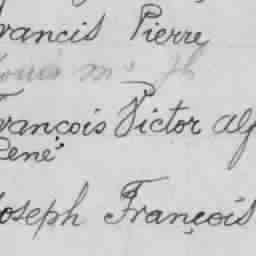 rancis Pierre
ouis m
rançois Victor alf
René
oseph François